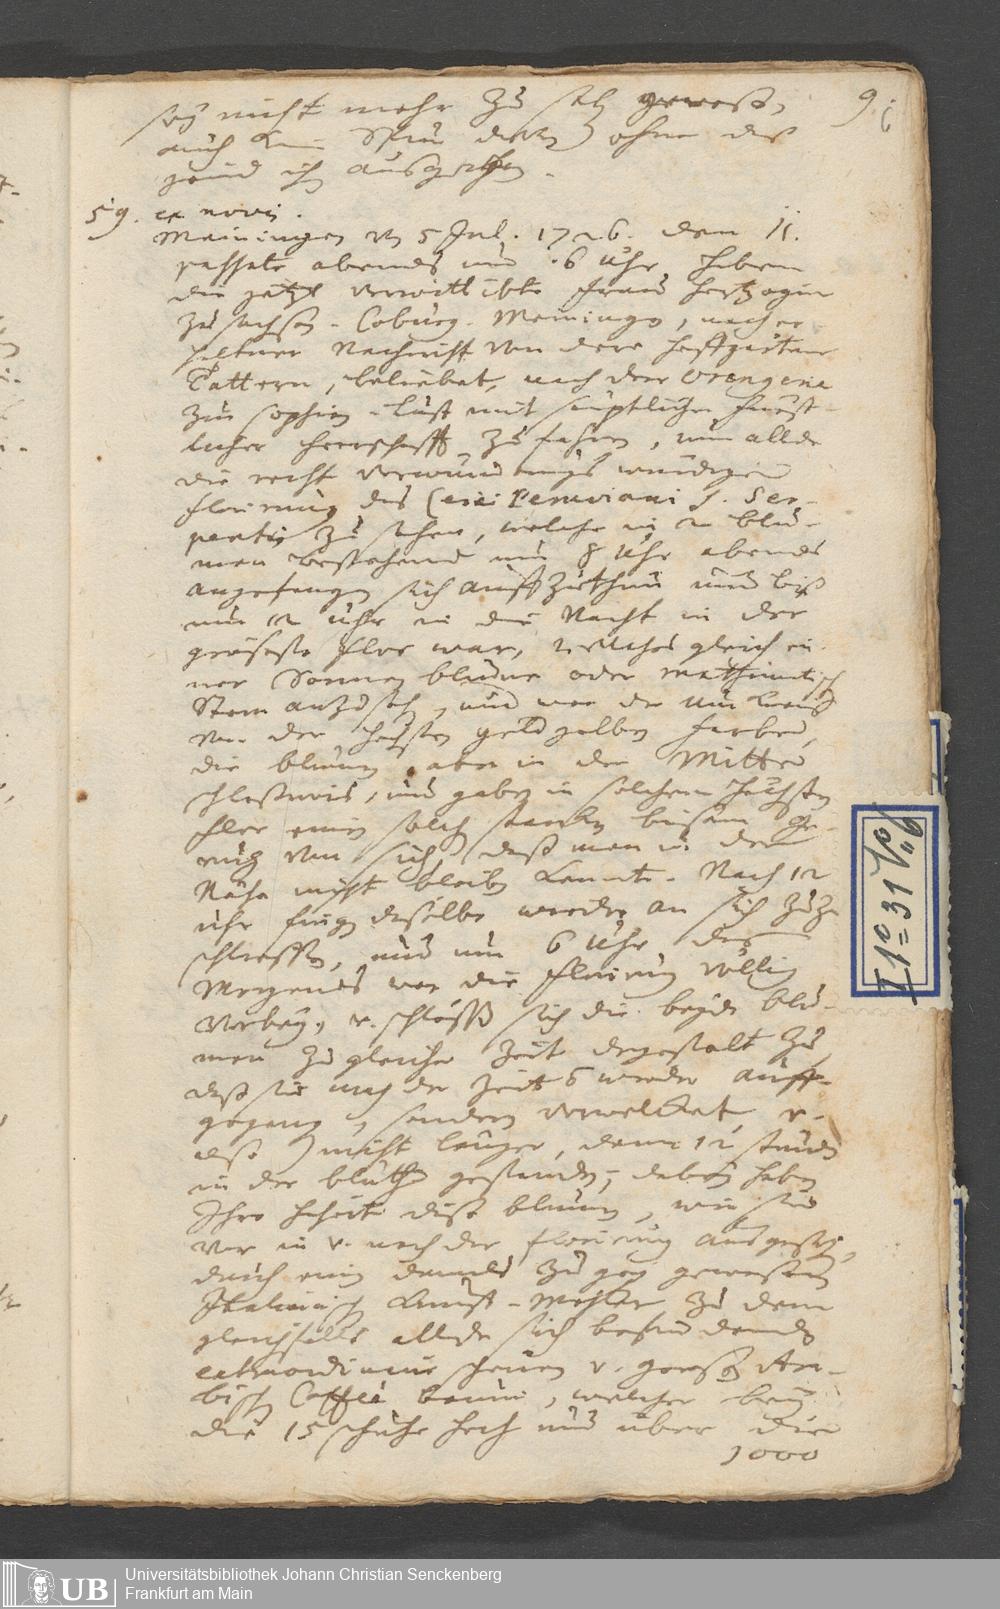 9
6
sey nicht mehr zu seh gewest,
auch kein Spur davon, ohne daß
ich ausgestochen.
59. ex novis.
Meiningen vom 5 Jul. 1726. dem 11.
passato abends um 6 Uhr haben
die jetzt verwittibte Frau Hertzogin
zu Sachsen-Coburg-Meiningen, nach er-
haltener Nachricht von dero Hoffgärtner
Tattern, beliebet, nach der Orengerie
zur Sophien-Lust mit sämptlicher Fürst-
licher Herrschafft zu fahren, um allda
die recht verwunderungs würdige
florirung des Cerei Peruviani s. Ser-
pentis zu sehen, welche in 2 Blu-
men bestehend um 8 Uhr abends
angefangen sich auffzuthun und biß
um 12 Uhr in die Nacht in der
grösesten flor war, welches gleich ei-
ner Sonnen blume oder mathematisch
Stern anzusehen, und war der Umkreiß
von der höchsten goldgelben farben,
die blumen aber in der Mitten
schloßweis, und gaben in solchem höchsten
flor einen solch starcken bisam Ge-
ruch von sich, daß man in der
Nähe nicht bleiben konnte. Nach 12
Uhr fing dieselbe wieder an sich zuzu-
schliessen, und um 6 Uhr des
Morgends war die florirung völlig
vorbey, v. schloß sich die beyde blu-
men zu gleicher Zeit dergestalt zu,
daß sie nach der Zeit nicht wieder auff-
gegangen, sondern verwelcket, v.
also nicht länger, dann 12 stunden
in der blüthe gestanden; dabey haben
Ihro Hoheit diese blumen, wie sie
vor in v. nach der florirung ausgesehen,
durch einen damals zu gegen gewesenen
Italienischen Kunst-Mahler zu dem
gleichfalls allda sich befindenden
extraordinair schönen v. grossen Ara-
bischen Coffée baum, welcher bey
die 15 schuhe hoch und über die
1000
I 1° = 31 %
Universitätsbibliothek Johann Christian Senckenberg
Frankfurt am Main
UB